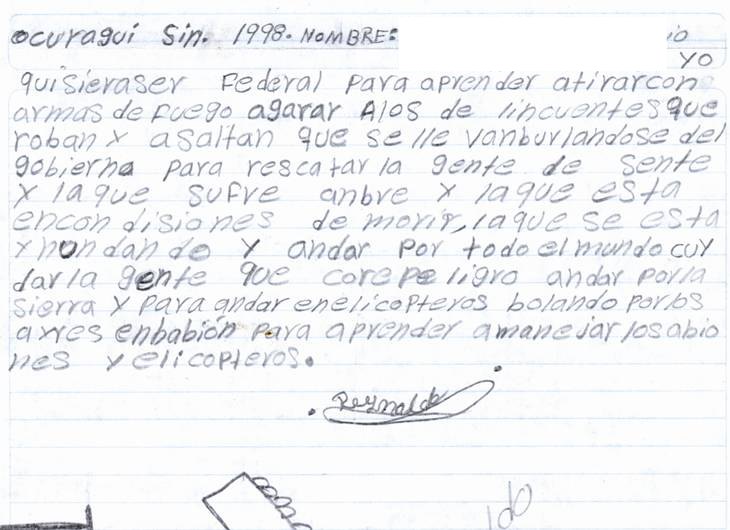 ocuragui Sin. 1998. NOMBRE:
io
yo
quisieraser Federal Para aprender atirarcon
armas de fuego agarar Alos de lincuentes que
roban x asaltan que se lle vanburlandose del
gobierno Para rescatar la gente de sente
x la que sufre anbre x la que esta
encon disiones de morir, la que se esta
xnundando y andar Por todo el mundo cuy
dar la gente que core peligro andar por la
sierra x para andar enelicopteros bolando por los
axres enbabión para aprender amanejar los abio
nes y elicopteros.
Reynaldo